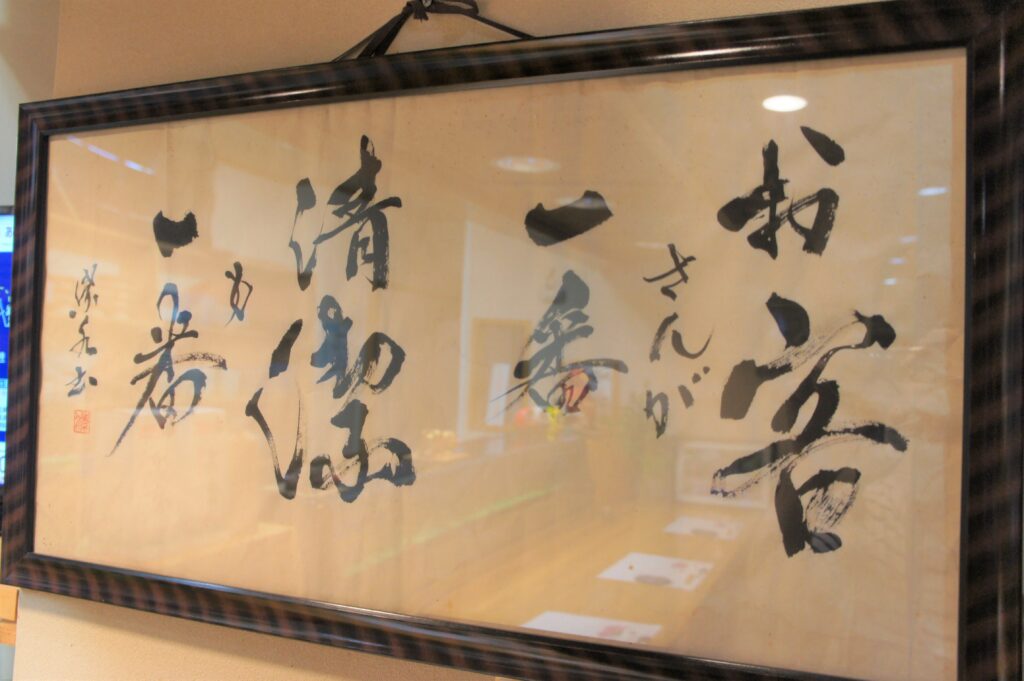 お客
さんが
一番
清潔
も
一番